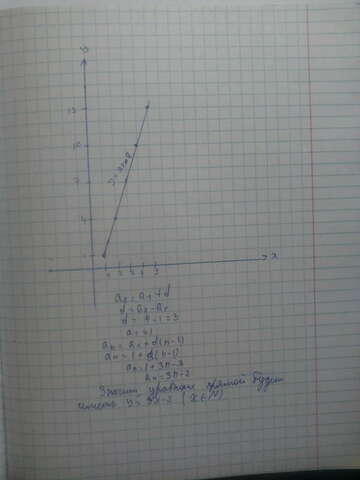 y
13
10
7
4
1
y=3x-2
1 2 3 4 5
x
a₂=a₁+d
d=a₂-a₁
d=4-1=3
a₁=1
aₙ=a₁+d(n-1)
aₙ=1+3(n-1)
aₙ=1+3n-3
aₙ=3n-2
Значит уравнение прямой будет
иметь y=3x-2 (x∈N)